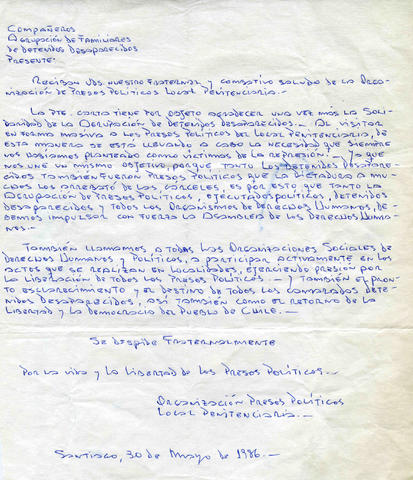 COMPAÑEROS
AGRUPACIÓN DE FAMILIARES
DE DETENIDOS DESAPARECIDOS
PRESENTE.
RECIBAN UDS. NUESTRO FRATERNAL Y COMBATIVO SALUDO DE LA ORGA-
NIZACIÓN DE PRESOS POLÍTICOS LOCAL PENITENCIARIA.-
LA PTE. CARTA TIENE POR OBJETO AGRADECER UNA VEZ MÁS LA SOLI-
DARIDAD DE LA AGRUPACIÓN DE DETENIDOS DESAPARECIDOS.- AL VISITAR
EN FORMA MASIVA A LOS PRESOS POLÍTICOS DEL LOCAL PENITENCIARIA, DE
ESTA MANERA SE ESTÁ LLEVANDO A CABO LA NECESIDAD QUE SIEMPRE
NOS HABÍAMOS PLANTEADO COMO VÍCTIMAS DE LA REPRESIÓN.- YA QUE
NOS UNE UN MISMO OBJETIVO PORQUE TANTO LOS DETENIDOS DESAPARE-
CIDOS TAMBIÉN FUERON PRESOS POLÍTICOS QUE LA DICTADURA A MU-
CHOS LOS ARREBATÓ DE LAS CÁRCELES, ES POR ESTO QUE TANTO LA
AGRUPACIÓN DE PRESOS POLÍTICOS, EJECUTADOS POLÍTICOS, DETENIDOS
DESAPARECIDOS Y TODOS LOS ORGANISMOS DE DERECHOS HUMANOS, DE-
BEMOS IMPULSAR CON FUERZA LA ASAMBLEA DE LOS DERECHOS HUMA-
NOS.-
TAMBIÉN LLAMAMOS A TODAS LAS ORGANIZACIONES SOCIALES DE
DERECHOS HUMANOS Y POLÍTICOS, A PARTICIPAR ACTIVAMENTE EN LOS
ACTOS QUE SE REALIZAN EN LOCALIDADES, EJERCIENDO PRESIÓN POR
LA LIBERACIÓN DE TODOS LOS PRESOS POLÍTICOS - Y TAMBIÉN EL PRON-
TO ESCLARECIMIENTO Y EL DESTINO DE TODOS LOS CAMARADAS DETE-
NIDOS DESAPARECIDOS, ASÍ TAMBIÉN COMO EL RETORNO DE LA
LIBERTAD Y LA DEMOCRACIA DEL PUEBLO DE CHILE.-
SE DESPIDE FRATERNALMENTE
POR LA VIDA Y LA LIBERTAD DE LOS PRESOS POLÍTICOS.-
ORGANIZACIÓN PRESOS POLÍTICOS
LOCAL PENITENCIARIA.-
SANTIAGO, 30 DE MAYO DE 1986.-